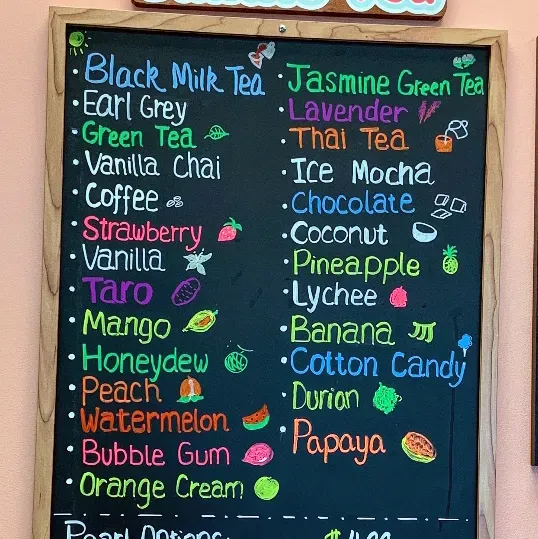 • Black Milk Tea
• Earl Grey
• Green Tea
• Vanilla Chai
• Coffee
• Strawberry
• Vanilla
• Taro
• Mango
• Honeydew
• Peach
• Watermelon
• Bubble Gum
• Orange Cream
• Jasmine Green Tea
• Lavender
• Thai Tea
• Ice Mocha
• Chocolate
• Coconut
• Pineapple
• Lychee
• Banana
• Cotton Candy
• Durian
• Papaya
Pearl Options